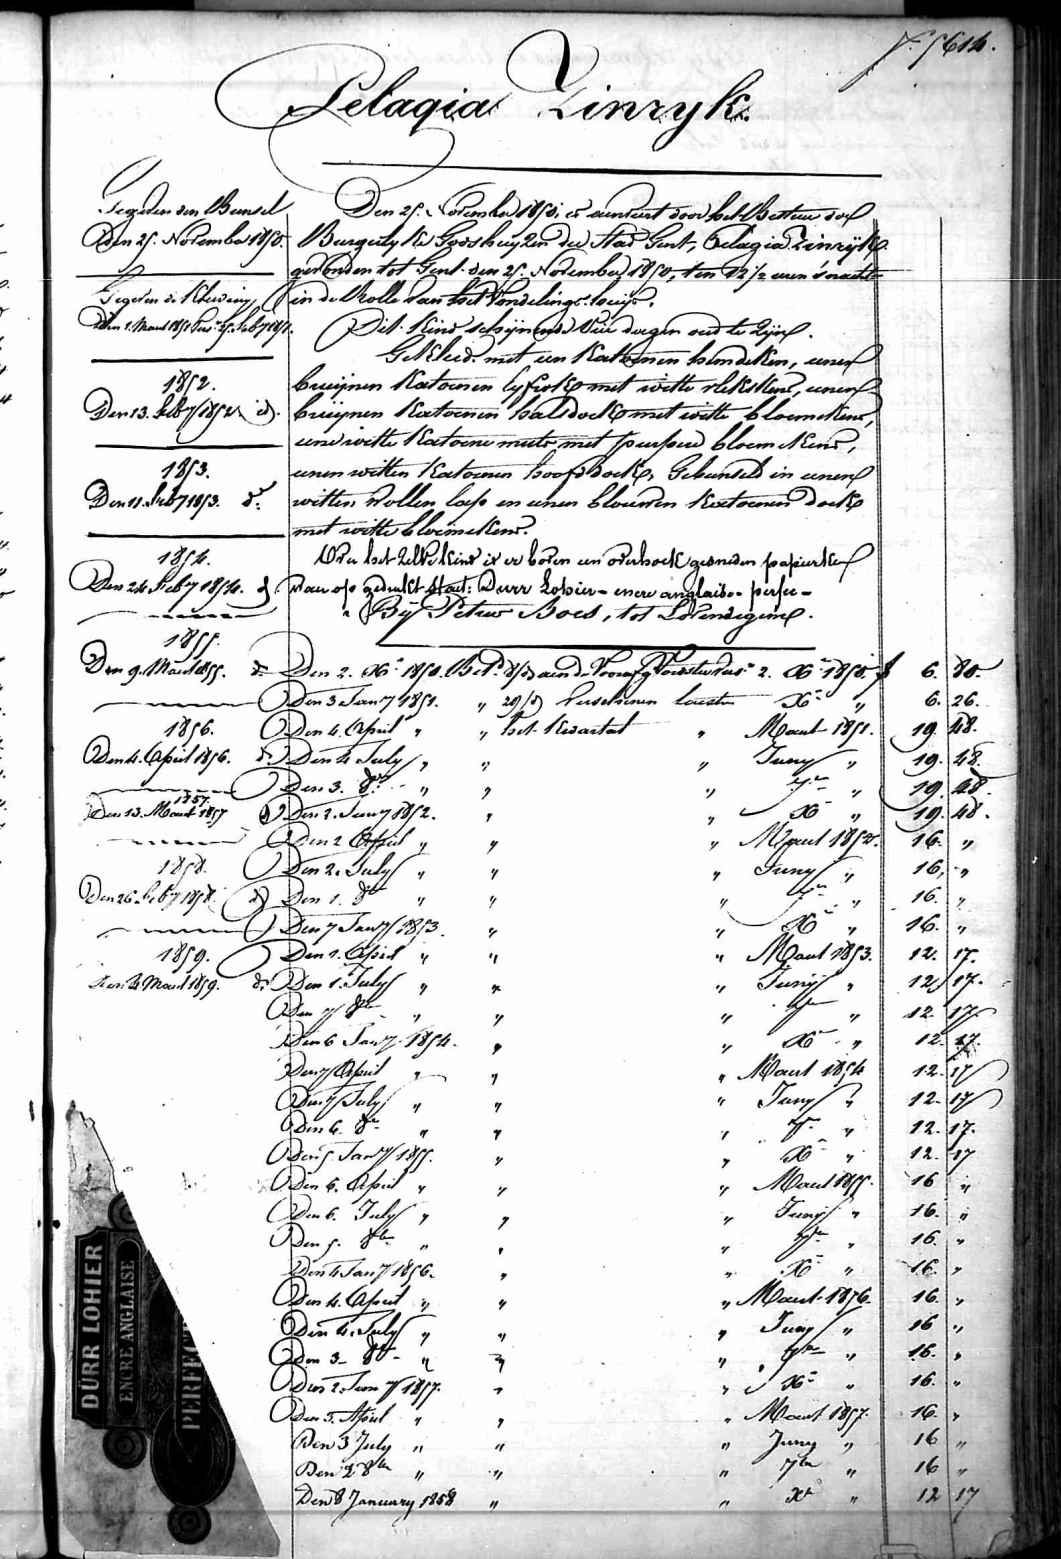 N. 5614.
Pelagia Zinryk.
Gegeven den Bunsel
Den 25. November 1850.
Gegeven de Kleeding
Den 1. Maart 1851
1852.
Den 13. Feb 1852 id.
1853.
Den 11. Feb 1853. d°.
1854.
Den 24 Feby 1854. d°
1855.
Den 9. Maart 1855. d°
1856.
Den 4. April 1856. d°
1857.
Den 13. Maart 1857 d°
1858.
Den 26 Feby 1858 d°
1859.
Den 3 Maart 1859. d°
Den 25. November 1850. is aenveird door het Bestuer der
Burgerlyke Godshuyzen der Stad Gent, Pelagia Zinryk
gevonden tot Gent den 25. November 1850, ten 12 1/2 uren 's nachts
in de Rolle van het Vondelings-huijs.
Dit kind schijnende vier dagen oud te zijn.
Gekleed met een katoenen hemdeken, eenen
bruijnen katoenen lyfrok met witte vlekskens, eenen
bruijnen katoenen halsdoek met witte bloemekens,
eene witte katoene muts met purpere bloemekens,
eenen witten katoenen hoofddoek, Gebunseld in eenen
witten wollen lap en eenen blauwen katoenen doek
met witte bloemekens.
Over het zelve kind is er boven een overhoek gesneden papierken
waer op gedrukt staet: Durr Lohier - encre anglaise - perfec -
Bij Petrus Boes, tot Lovendegem.
Den 2. Xe 1850. 2. Xe 1850. f 6. 80.
Den 3 Jany 1851. " 29/d verschenen laesten Xe " 6. 26.
Den 4. April " " het Kwartal " Maart 1851. 19. 48.
Den 4 July " " " Juny " 19. 48.
Den 3. 8bre " " " 7bre " 19. 48.
Den 2. Jany 1852. " " Xe " 19. 48.
Den 2 April " " " Maart 1852. 16. "
Den 2. July " " " Juny " 16. "
Den 1. 8bre " " " 7bre " 16. "
Den 7 Jany 1853. " " Xe " 16. "
Den 1. April " " " Maart 1853. 12. 17.
Den 1. July " " " Juny " 12. 17.
Den 7 8bre " " " 7bre " 12. 17.
Den 6 Jany 1854. " " Xe " 12. 17.
Den 7 April " " " Maart 1854 12. 17
Den 7 July " " " Juny " 12. 17
Den 6. 8bre " " " 7bre " 12. 17.
Den 5. Jany 1855. " " Xe " 12. 17
Den 6. April " " " Maart 1855. 16 "
Den 6. July " " " Juny " 16. "
Den 5. 8bre " " " 7bre " 16. "
Den 4 Jany 1856. " " Xe " 16. "
Den 4. April " " " Maart 1856. 16. "
Den 4. July " " " Juny " 16 "
Den 3 - 8bre - " " " 7bre " 16. "
Den 2. Jany 1857. " " Xe " 16. "
Den 3. April " " " Maart 1857. 16. "
Den 3 July " " " Juny " 16 "
Den 2 8bre " " " 7bre " 16 "
Den 8 January 1858 " " Xe " 12 17
DÜRR LOHIER
ENCRE ANGLAISE
PERFECT